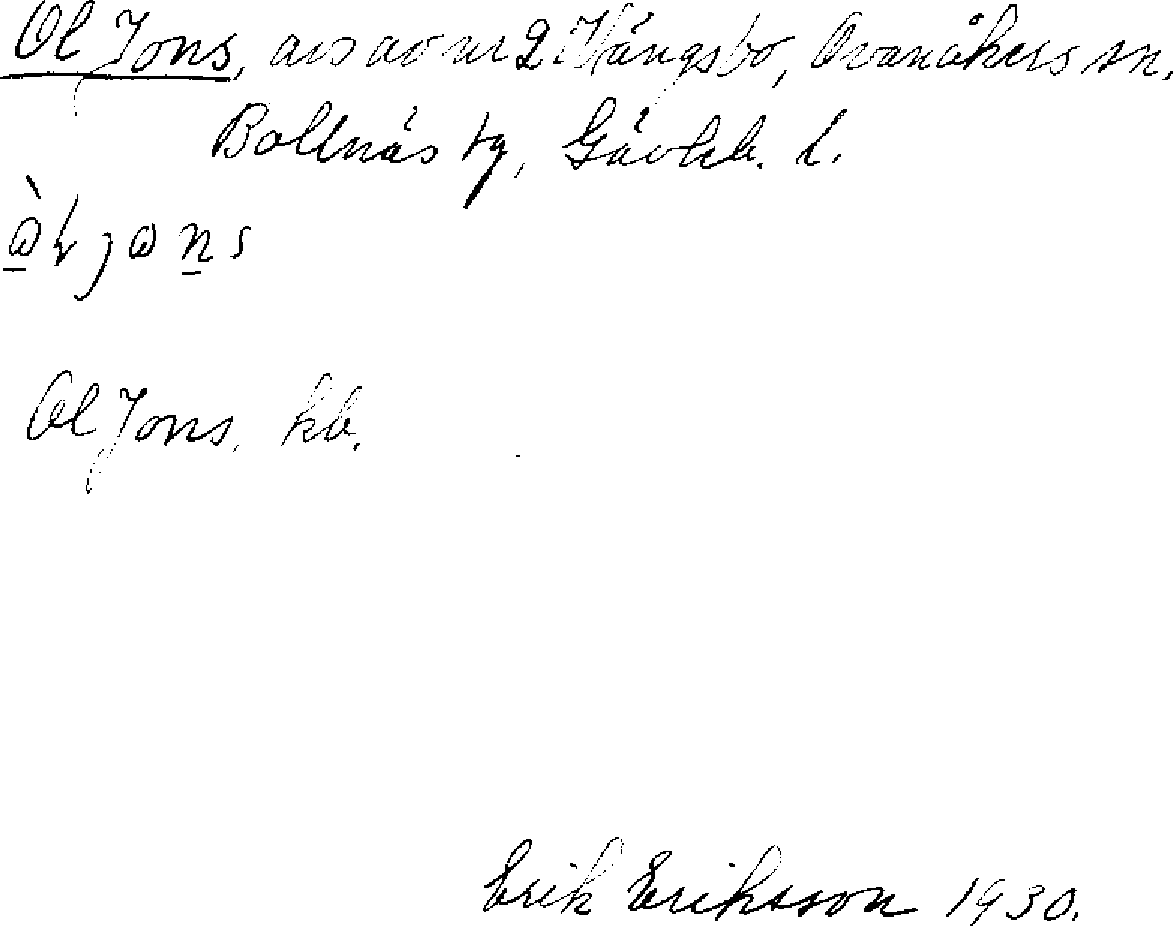 Ol Jons, avs av nr 2 Vängsbo, Ovanåkers sn,
Bollnäs tg, Gävleb. l.
Ol Jons, kb.
Erik Eriksson 1930.